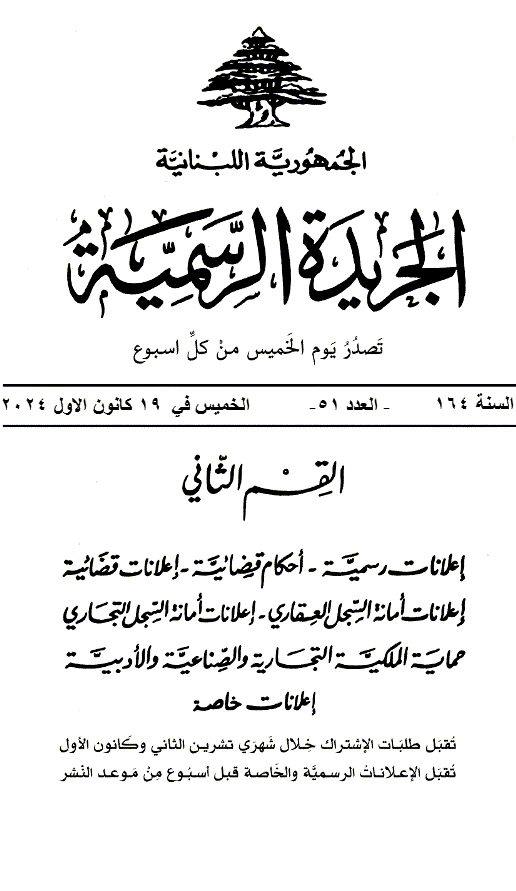 الجُمهُوريَّة اللبْنانيَّة
الجَرِيدَة الرَّسمِيَّة
تَصدُرُ يَوم الخَميس منْ كلِّ اسبوع
السنة ١٦٤ - العدد ٥١- الخميس في ١٩ كانون الاول ٢٠٢٤
القِسْم الثَّاني
إعلانات رسميَّة - أحكام قضائيَّة - إعلانات قضائية
إعلانات أمانة السِّجل العِقاري - إعلانات أمانة السِّجل التِّجاري
حماية الملكيَّة التجارية والصِّناعيَّة والأدبيَّة
إعلانات خاصة
تُقبَل طلبَات الإشتراك خِلال شَهرَي تشرين الثاني وكَانون الأول
تُقبَل الإعلاناتُ الرسميَّة والخَاصة قبل أسبُوع مِنْ مَوعد النَشر